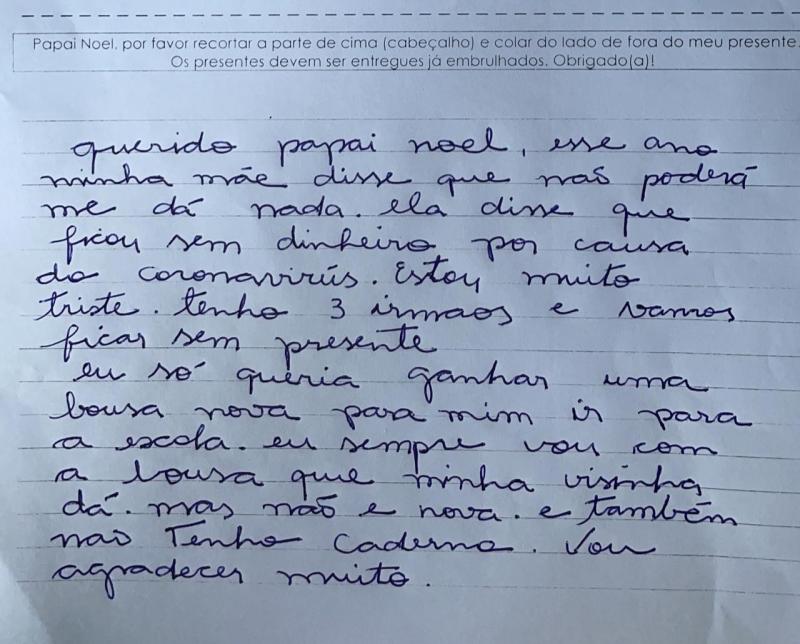 Papai Noel, por favor recortar a parte de cima (cabeçalho) e colar do lado de fora do meu presente.
Os presentes devem ser entregues já embrulhados. Obrigado(a)!
querido papai noel, esse ano
minha mãe disse que não poderá
me dá nada. ela disse que
ficou sem dinheiro por causa
do coronavirús. Estou muito
triste. tenho 3 irmaos e vamos
ficar sem presente
eu só queria ganhar uma
bousa nova para mim ir para
a escola. eu sempre vou com
a bousa que minha visinha
dá. mas não e nova. e também
não Tenho caderno. Vou
agradecer muito.